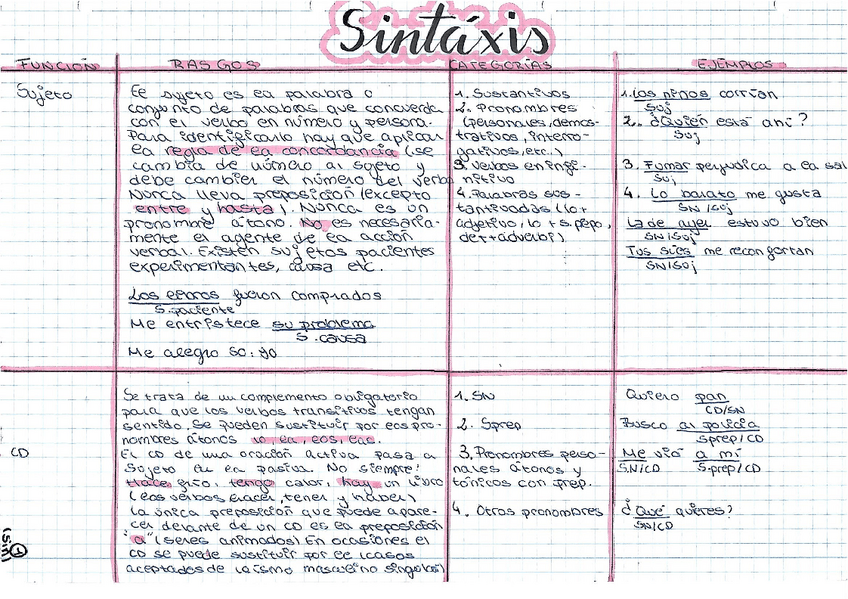 Sintáxis
FUNCIÓN
RASGOS
CATEGORÍAS
EJEMPLOS
Sujeto
El sujeto es la palabra o
conjunto de palabras que concuerda
con el verbo en número y persona.
Para identificarlo hay que aplicar
la regla de la concordancia (se
cambia de número al sujeto y
debe cambiar el número del verbo
Nunca lleva preposición (excepto
entre y hasta). Nunca es un
pronombre átono. No es necesaria-
mente el agente de la acción
verbal. Existen sujetos pacientes
experimentantes, causa etc.
Los libros fueron comprados
S. paciente
Me entristece su problema
S. causa
Me alegro SO: yo
1. Sustantivos
2. Pronombres
(personales, demos-
trativos, interro-
gativos, etc.)
3 Verbos en infi-
nitivo
4. Palabras sus-
tantivadas (lo +
adjetivo, lo + s.prep,
det+adverbi)
1. Los niños corrían
Suj
2. ¿Quién está ahí?
Suj
3. Fumar perjudica a la sal
Suj
4. Lo barato me gusta
SN/Suj
La de ayer estuvo bien
SN/Suj
Tus síes me reconfortan
SN/Suj
CD
Se trata de un complemento obligatorio
para que los verbos transitivos tengan
sentido. Se pueden sustituir por los pro-
nombres átonos lo, la, los, las.
El CD de una oración activa pasa a
sujeto de la pasiva. No siempre!
Hace frío, tengo calor, hay un libro
(los verbos hacer, tener y haber)
La única preposición que puede apare-
cer delante de un CD es la preposición
"a" (seres animados) En ocasiones el
CD se puede sustituir por le (casos
aceptados de laísmo masculino singular)
1. SN
2. Sprep
3. Pronombres perso-
nales átonos y
tónicos con prep.
4. Otros pronombres
Quiero pan
CD/SN
Busco al policía
Sprep/CD
Me vio a mí
SN/CD S.prep/CD
¿Qué quieres?
SN/CD
(Sin)
1